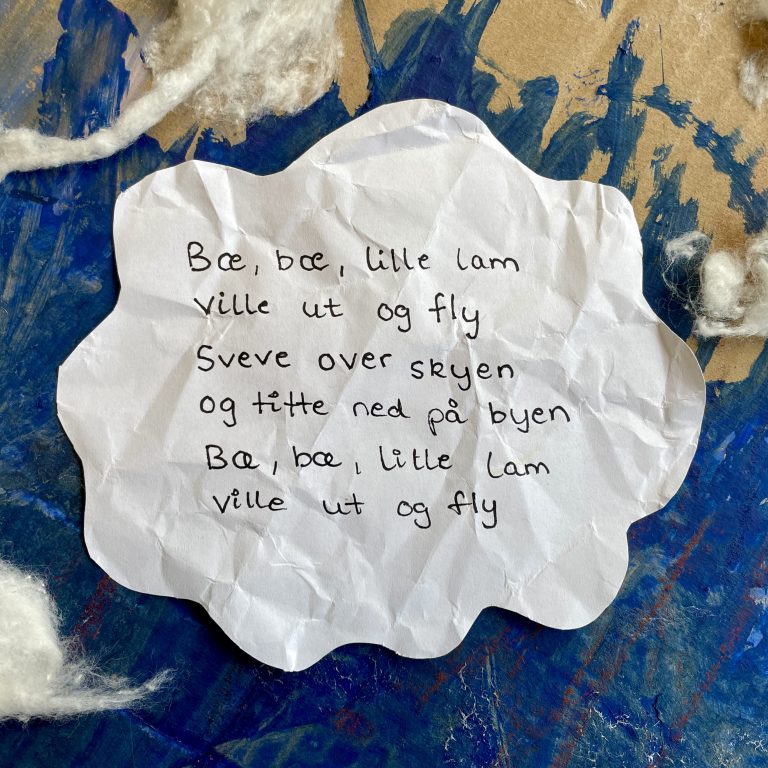 Bæ, bæ, lille lam
ville ut og fly
Sveve over skyen
og titte ned på byen
Bæ, bæ, lille lam
ville ut og fly